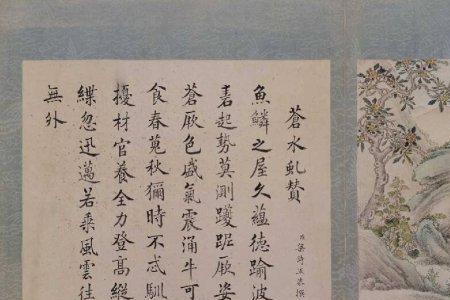 蒼水虬贊
臣梁詩正恭撰
魚鱗之屋久蘊德踰波
砉起勢莫測躩跜厥姿
蒼厥色盛氣震涌牛可
食春蒐秋獮時不忒馴
擾材官養全力登高縱
緤忽迅邁若乘風雲往
無外